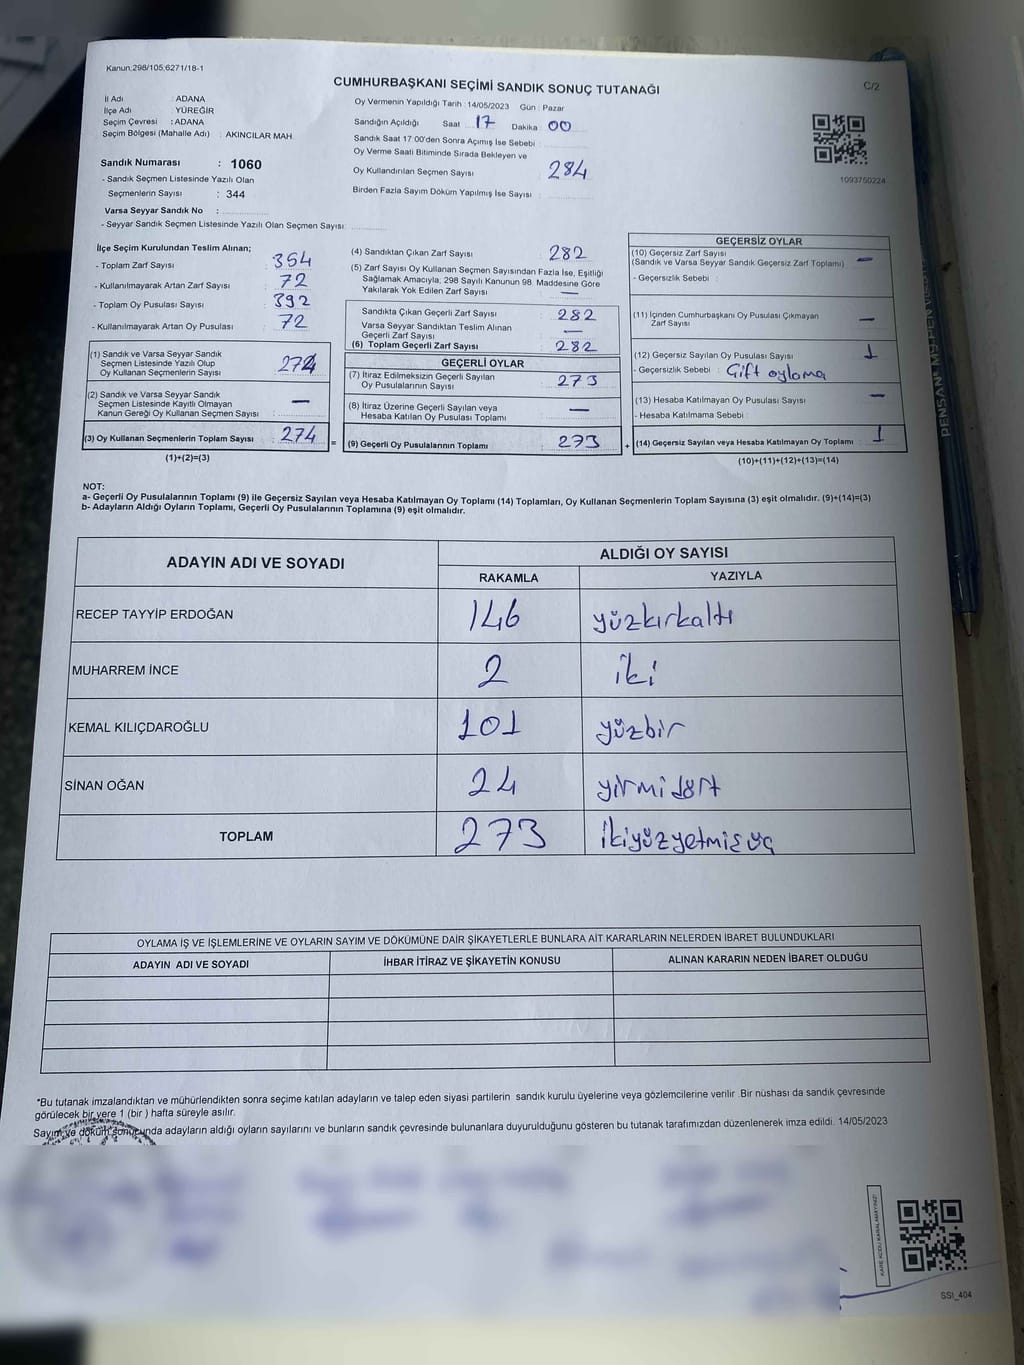 Kanun:298/105;6271/18-1
CUMHURBAŞKANI SEÇİMİ SANDIK SONUÇ TUTANAĞI
C/2
İl Adı : ADANA
İlçe Adı : YÜREĞİR
Seçim Çevresi : ADANA
Seçim Bölgesi (Mahalle Adı) : AKINCILAR MAH.
Sandık Numarası : 1060
- Sandık Seçmen Listesinde Yazılı Olan
Seçmenlerin Sayısı : 344
Varsa Seyyar Sandık No :
- Seyyar Sandık Seçmen Listesinde Yazılı Olan Seçmen Sayısı:
Oy Vermenin Yapıldığı Tarih :14/05/2023 Gün : Pazar
Sandığın Açıldığı Saat 17 Dakika 00
Sandık Saat 17:00'den Sonra Açımış İse Sebebi :
Oy Verme Saati Bitiminde Sırada Bekleyen ve
Oy Kullandırılan Seçmen Sayısı : 284
Birden Fazla Sayım Döküm Yapılmış İse Sayısı :
1093750224
İlçe Seçim Kurulundan Teslim Alınan;
- Toplam Zarf Sayısı : 354
- Kullanılmayarak Artan Zarf Sayısı : 72
- Toplam Oy Pusulası Sayısı : 392
- Kullanılmayarak Artan Oy Pusulası : 72
(1) Sandık ve Varsa Seyyar Sandık
Seçmen Listesinde Yazılı Olup
Oy Kullanan Seçmenlerin Sayısı : 274
(2) Sandık ve Varsa Seyyar Sandık
Seçmen Listesinde Kayıtlı Olmayan
Kanun Gereği Oy Kullanan Seçmen Sayısı : —
(3) Oy Kullanan Seçmenlerin Toplam Sayısı : 274
(1)+(2)=(3)
(4) Sandıktan Çıkan Zarf Sayısı : 282
(5) Zarf Sayısı Oy Kullanan Seçmen Sayısından Fazla İse, Eşitliği
Sağlamak Amacıyla, 298 Sayılı Kanunun 98. Maddesine Göre
Yakılarak Yok Edilen Zarf Sayısı : —
Sandıkta Çıkan Geçerli Zarf Sayısı : 282
Varsa Seyyar Sandıktan Teslim Alınan
Geçerli Zarf Sayısı : —
(6) Toplam Geçerli Zarf Sayısı : 282
GEÇERLİ OYLAR
(7) İtiraz Edilmeksizin Geçerli Sayılan
Oy Pusulalarının Sayısı : 273
(8) İtiraz Üzerine Geçerli Sayılan veya
Hesaba Katılan Oy Pusulası Toplamı : —
= (9) Geçerli Oy Pusulalarının Toplamı : 273
GEÇERSİZ OYLAR
(10) Geçersiz Zarf Sayısı
(Sandık ve Varsa Seyyar Sandık Geçersiz Zarf Toplamı) : —
- Geçersizlik Sebebi :
(11) İçinden Cumhurbaşkanı Oy Pusulası Çıkmayan
Zarf Sayısı : —
(12) Geçersiz Sayılan Oy Pusulası Sayısı : 1
- Geçersizlik Sebebi : Çift oylama
(13) Hesaba Katılmayan Oy Pusulası Sayısı : —
- Hesaba Katılmama Sebebi :
+ (14) Geçersiz Sayılan veya Hesaba Katılmayan Oy Toplamı : 1
(10)+(11)+(12)+(13)=(14)
NOT:
a- Geçerli Oy Pusulalarının Toplamı (9) ile Geçersiz Sayılan veya Hesaba Katılmayan Oy Toplamı (14) Toplamları, Oy Kullanan Seçmenlerin Toplam Sayısına (3) eşit olmalıdır. (9)+(14)=(3)
b- Adayların Aldığı Oyların Toplamı, Geçerli Oy Pusulalarının Toplamına (9) eşit olmalıdır.
ADAYIN ADI VE SOYADI
ALDIĞI OY SAYISI
RAKAMLA YAZIYLA
RECEP TAYYİP ERDOĞAN 146 yüzkırkaltı
MUHARREM İNCE 2 iki
KEMAL KILIÇDAROĞLU 101 yüzbir
SİNAN OĞAN 24 yirmidört
TOPLAM 273 ikiyüzyetmişüç
OYLAMA İŞ VE İŞLEMLERİNE VE OYLARIN SAYIM VE DÖKÜMÜNE DAİR ŞİKAYETLERLE BUNLARA AİT KARARLARIN NELERDEN İBARET BULUNDUKLARI
ADAYIN ADI VE SOYADI İHBAR İTİRAZ VE ŞİKAYETİN KONUSU ALINAN KARARIN NEDEN İBARET OLDUĞU
*Bu tutanak imzalandıktan ve mühürlendikten sonra seçime katılan adayların ve talep eden siyasi partilerin sandık kurulu üyelerine veya gözlemcilerine verilir. Bir nüshası da sandık çevresinde
görülecek bir yere 1 (bir ) hafta süreyle asılır.
Sayım ve döküm sonucunda adayların aldığı oyların sayılarını ve bunların sandık çevresinde bulunanlara duyurulduğunu gösteren bu tutanak tarafımızdan düzenlenerek imza edildi. 14/05/2023
KARE KODU KARALAMAYINIZ!
SSİ_404
PENSAN